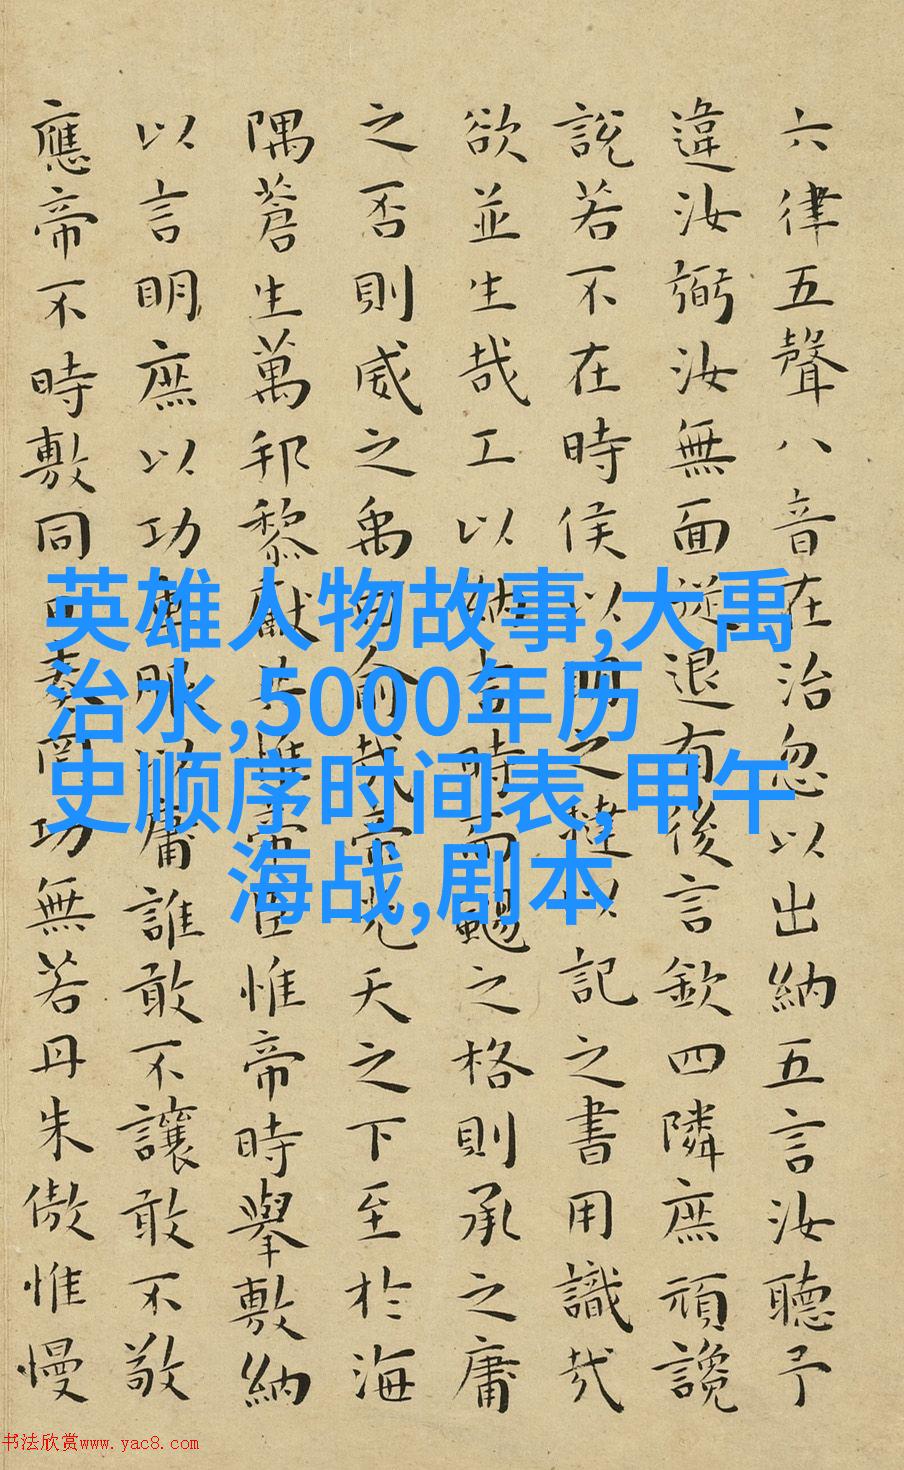 六律五聲八音在治忽以出納五言汝聽予
違汝弼汝無面從退有後言欽四隣庶頑讒
說若不在時侯以明之撻以記之書用識哉
欲並生哉工以納言時而颺之格則承之庸
之否則威之禹曰俞哉帝光天之下至於海
隅蒼生萬邦黎獻共惟帝臣惟帝時舉敷納
以言明庶以功車服以庸誰敢不讓敢不敬
應帝不時敷同日奏罔功無若丹朱傲惟慢
英雄人物故事,大禹
治水,5000年历
史顺序时间表,甲午
海战,剧本
书法欣赏www.yac8.com